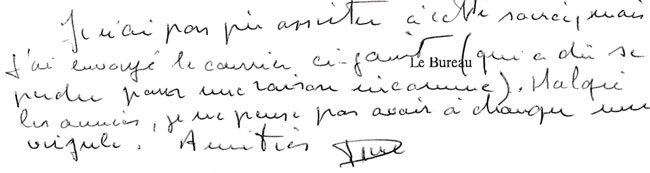 Je n'ai pas pu assister à cette soirée, mais
j'ai envoyé le courrier ci-joint (qui a dû se
Le Bureau
perdre pour une raison inconnue). Malgré
les années, je ne pense pas avoir à changer une
virgule. Amitiés